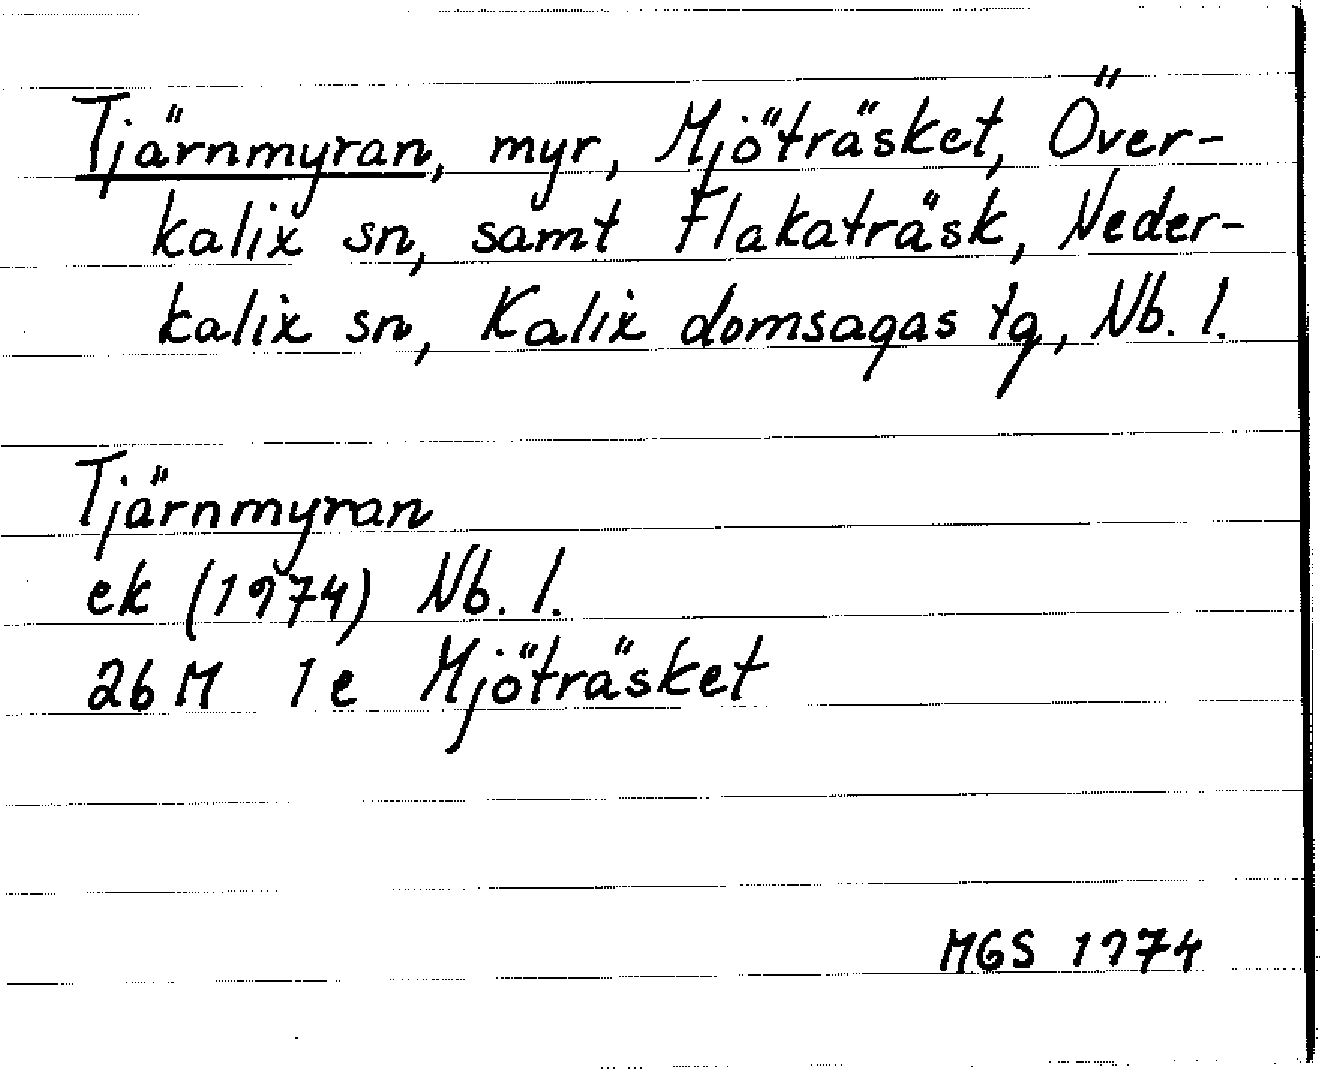 Tjärnmyran, myr, Mjöträsket, Över-
kalix sn, samt Flakaträsk, Neder-
kalix sn, Kalix domsagas tg, Nb. l.
Tjärnmyran
ek (1974) Nb. l.
26 M 1e Mjöträsket
MGS 1974